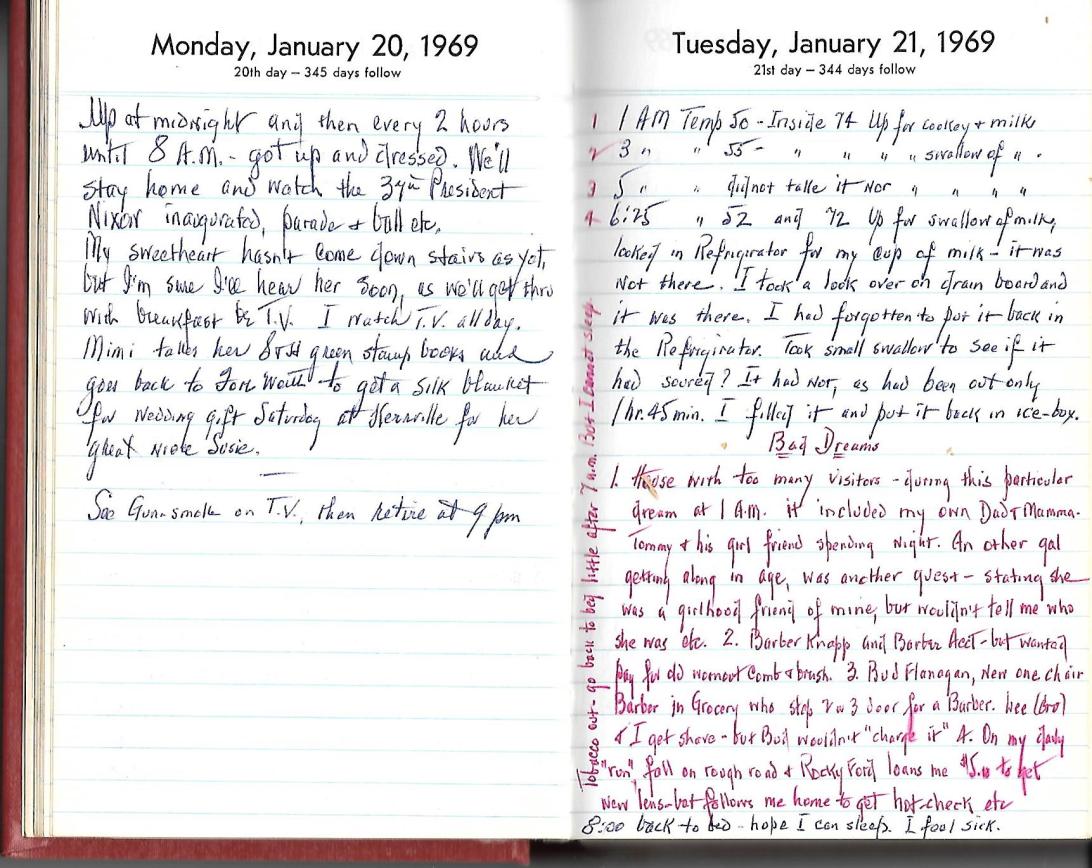 Monday, January 20, 1969
20th day – 345 days follow
Up at midnight and then every 2 hours
until 8 A.M. - got up and dressed. We'll
stay home and watch the 37th President
Nixon inaugurated, parade + ball etc.
My sweetheart hasn't come down stairs as yet,
but I'm sure I'll hear her soon, as we'll get thru
with breakfast & T.V. I watch T.V. all day.
Mimi takes her green stamp books and
goes back to Fort Worth to get a silk blanket
for wedding gift Saturday at Kerrville for her
great niece Susie.
See Gunsmoke on T.V., then retire at 9 pm
Tuesday, January 21, 1969
21st day – 344 days follow
1 1 AM Temp 50 - Inside 74 Up for cookey + milk
2 3 " " 55 - " " " " swallow of " .
3 5 " " did not take it Nor " " " "
4 6:25 " 52 and 72 Up for swallow of milk,
looked in Refrigirator for my cup of milk - it was
Not there. I took a look over on drain board and
it was there. I had forgotten to put it back in
the Refrigirator. Took small swallow to see if it
had soured? It had Not, as had been out only
1 hr. 45 min. I filled it and put it back in ice-box.
Bad Dreams
1. House with too many visitors - during this particular
dream at 1 A.M. it included my own Dad & Mamma-
Tommy + his girl friend spending Night. An other gal
getting along in age, was another guest - stating she
was a girlhood friend of mine, but wouldn't tell me who
she was etc. 2. Barber Knapp and Barber - but wanted
pay for old wornout Comb & brush. 3. Bud Flanagan, New one chair
Barber in Grocery who stop 2 or 3 door for a Barber. Lee (bro)
& I get shave - but Bud wouldn't "charge it" 4. On my daily
"run", fall on rough road & Rocky Ford loans me $5.00 to get
new lens - but follows me home to get hot-check etc
8:00 back to bed - hope I can sleep. I feel sick.
Tobacco out - go back to bed little after 7 a.m. But I cannot sleep.